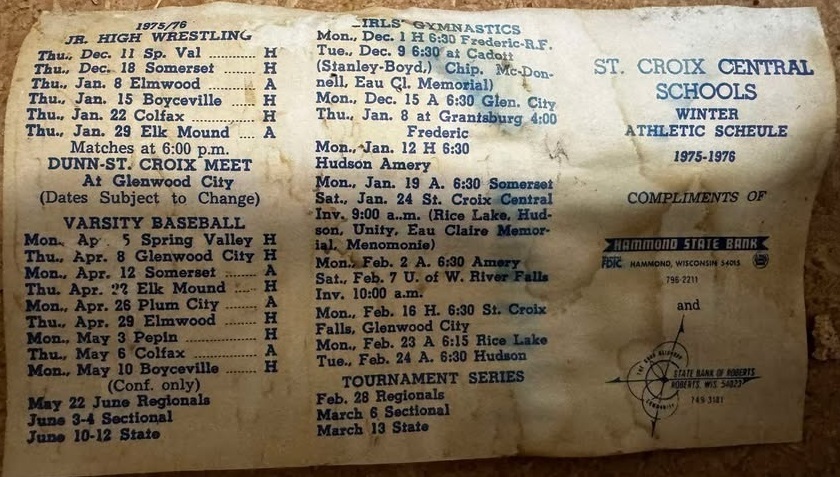 1975/76
JR. HIGH WRESTLING
Thu., Dec. 11 Sp. Val ............ H
Thu., Dec. 18 Somerset ........ H
Thu., Jan. 8 Elmwood ........... A
Thu., Jan. 15 Boyceville ........ H
Thu., Jan. 22 Colfax .............. H
Thu., Jan. 29 Elk Mound ...... A
Matches at 6:00 p.m.
DUNN-ST. CROIX MEET
At Glenwood City
(Dates Subject to Change)
VARSITY BASEBALL
Mon., Ap 5 Spring Valley H
Thu., Apr. 8 Glenwood City H
Mon., Apr. 12 Somerset ........ A
Thu. Apr. Elk Mound ....... H
Mon., Apr. 26 Plum City ........ A
Thu., Apr. 29 Elmwood .......... H
Mon., May 3 Pepin ................. H
Thu., May 6 Colfax ................. A
Mon., May 10 Boyceville ........ H
(Conf. only)
May 22 June Regionals
June 3-4 Sectional
June 10-12 State
IRLS' GYMNASTICS
Mon., Dec. 1 H 6:30 Frederic-R.F.
Tue., Dec. 9 6:30 at Cadott
(Stanley-Boyd,) Chip. Mc-Don-
nell, Eau Cl. Memorial)
Mon., Dec. 15 A 6:30 Glen. City
Thu., Jan. 8 at Grantsburg 4:00
Frederic
Mon., Jan. 12 H 6:30
Hudson Amery
Mon., Jan. 19 A. 6:30 Somerset
Sat., Jan. 24 St. Croix Central
Inv. 9:00 a..m. (Rice Lake, Hud-
son, Unity, Eau Claire Memor-
ial, Menomonie)
Mon., Feb. 2 A. 6:30 Amery
Sat., Feb. 7 U. of W. River Falls
Inv. 10:00 a.m.
Mon., Feb. 16 H. 6:30 St. Croix
Falls, Glenwood City
Mon., Feb. 23 A 6:15 Rice Lake
Tue., Feb. 24 A. 6:30 Hudson
TOURNAMENT SERIES
Feb. 28 Regionals
March 6 Sectional
March 13 State
ST. CROIX CENTRAL
SCHOOLS
WINTER
ATHLETIC SCHEULE
1975-1976
COMPLIMENTS OF
HAMMOND STATE BANK
FDIC HAMMOND, WISCONSIN 54015
796-2211
and
THE GOOD NEIGHBOR
STATE BANK OF ROBERTS
ROBERTS, WIS. 54023
COMMUNITY
749-3181